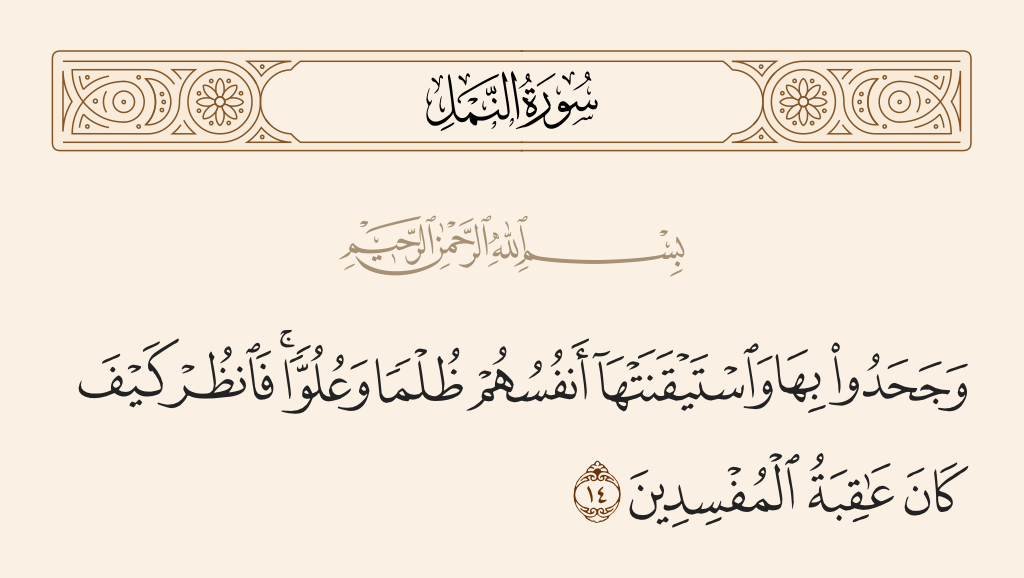 سُورَةُ النَّمْلِ
بِسْمِ ٱللَّهِ ٱلرَّحْمَٰنِ ٱلرَّحِيمِ
وَجَحَدُوا۟ بِهَا وَٱسْتَيْقَنَتْهَآ أَنفُسُهُمْ ظُلْمًا وَعُلُوًّا ۚ فَٱنظُرْ كَيْفَ
كَانَ عَٰقِبَةُ ٱلْمُفْسِدِينَ ١٤